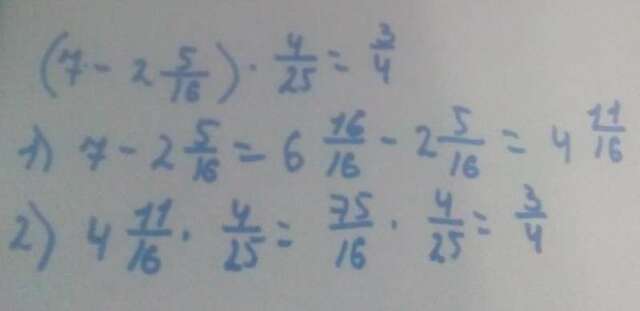 (7 - 2 5/16) · 4/25 = 3/4
1) 7 - 2 5/16 = 6 16/16 - 2 5/16 = 4 11/16
2) 4 11/16 · 4/25 = 75/16 · 4/25 = 3/4